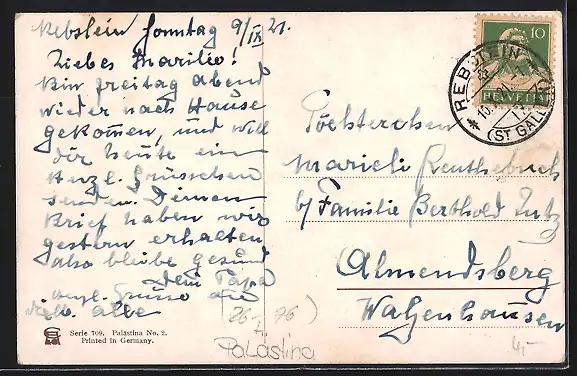 Rebstein Sonntag 9/IX 21.
Liebes Marilie!
Bin freitag abend
wieder nach Hause
gekommen, und will
dir heute ein
Herzl. Grüsschen
senden. Deinen
Brief haben wir
gestern erhalten,
also bleibe gesund
dein Papa
herzl. Grüsse an
alle
10
HELVETIA
REBSTEIN
(ST GALLEN)
Töchterchen
Marieli
b/ Familie Berthold Lutz
Almendsberg
Walzenhausen
26 - 76)
Palästina
Serie 709. Palästina No. 2.
Printed in Germany.